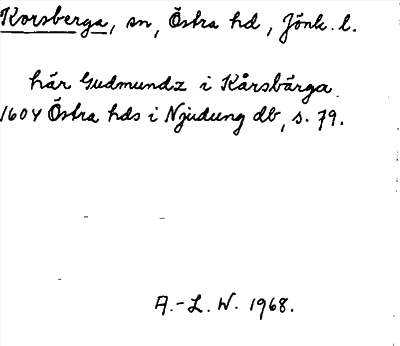 Korsberga, sn, Östra hd, Jönk. l.
här Gudmundz i Kårsbärga.
1604 Östra hds i Njudung db, s. 79.
A.-L. W. 1968.